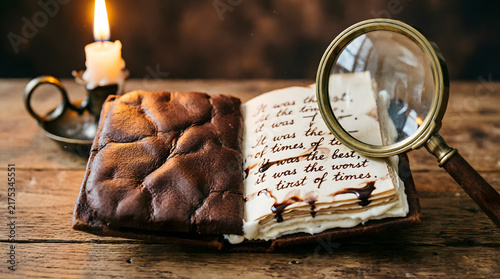 It was the
st of times.
It was the
of times of te
It was the
was the best, it
it was the worst
tirst of times.